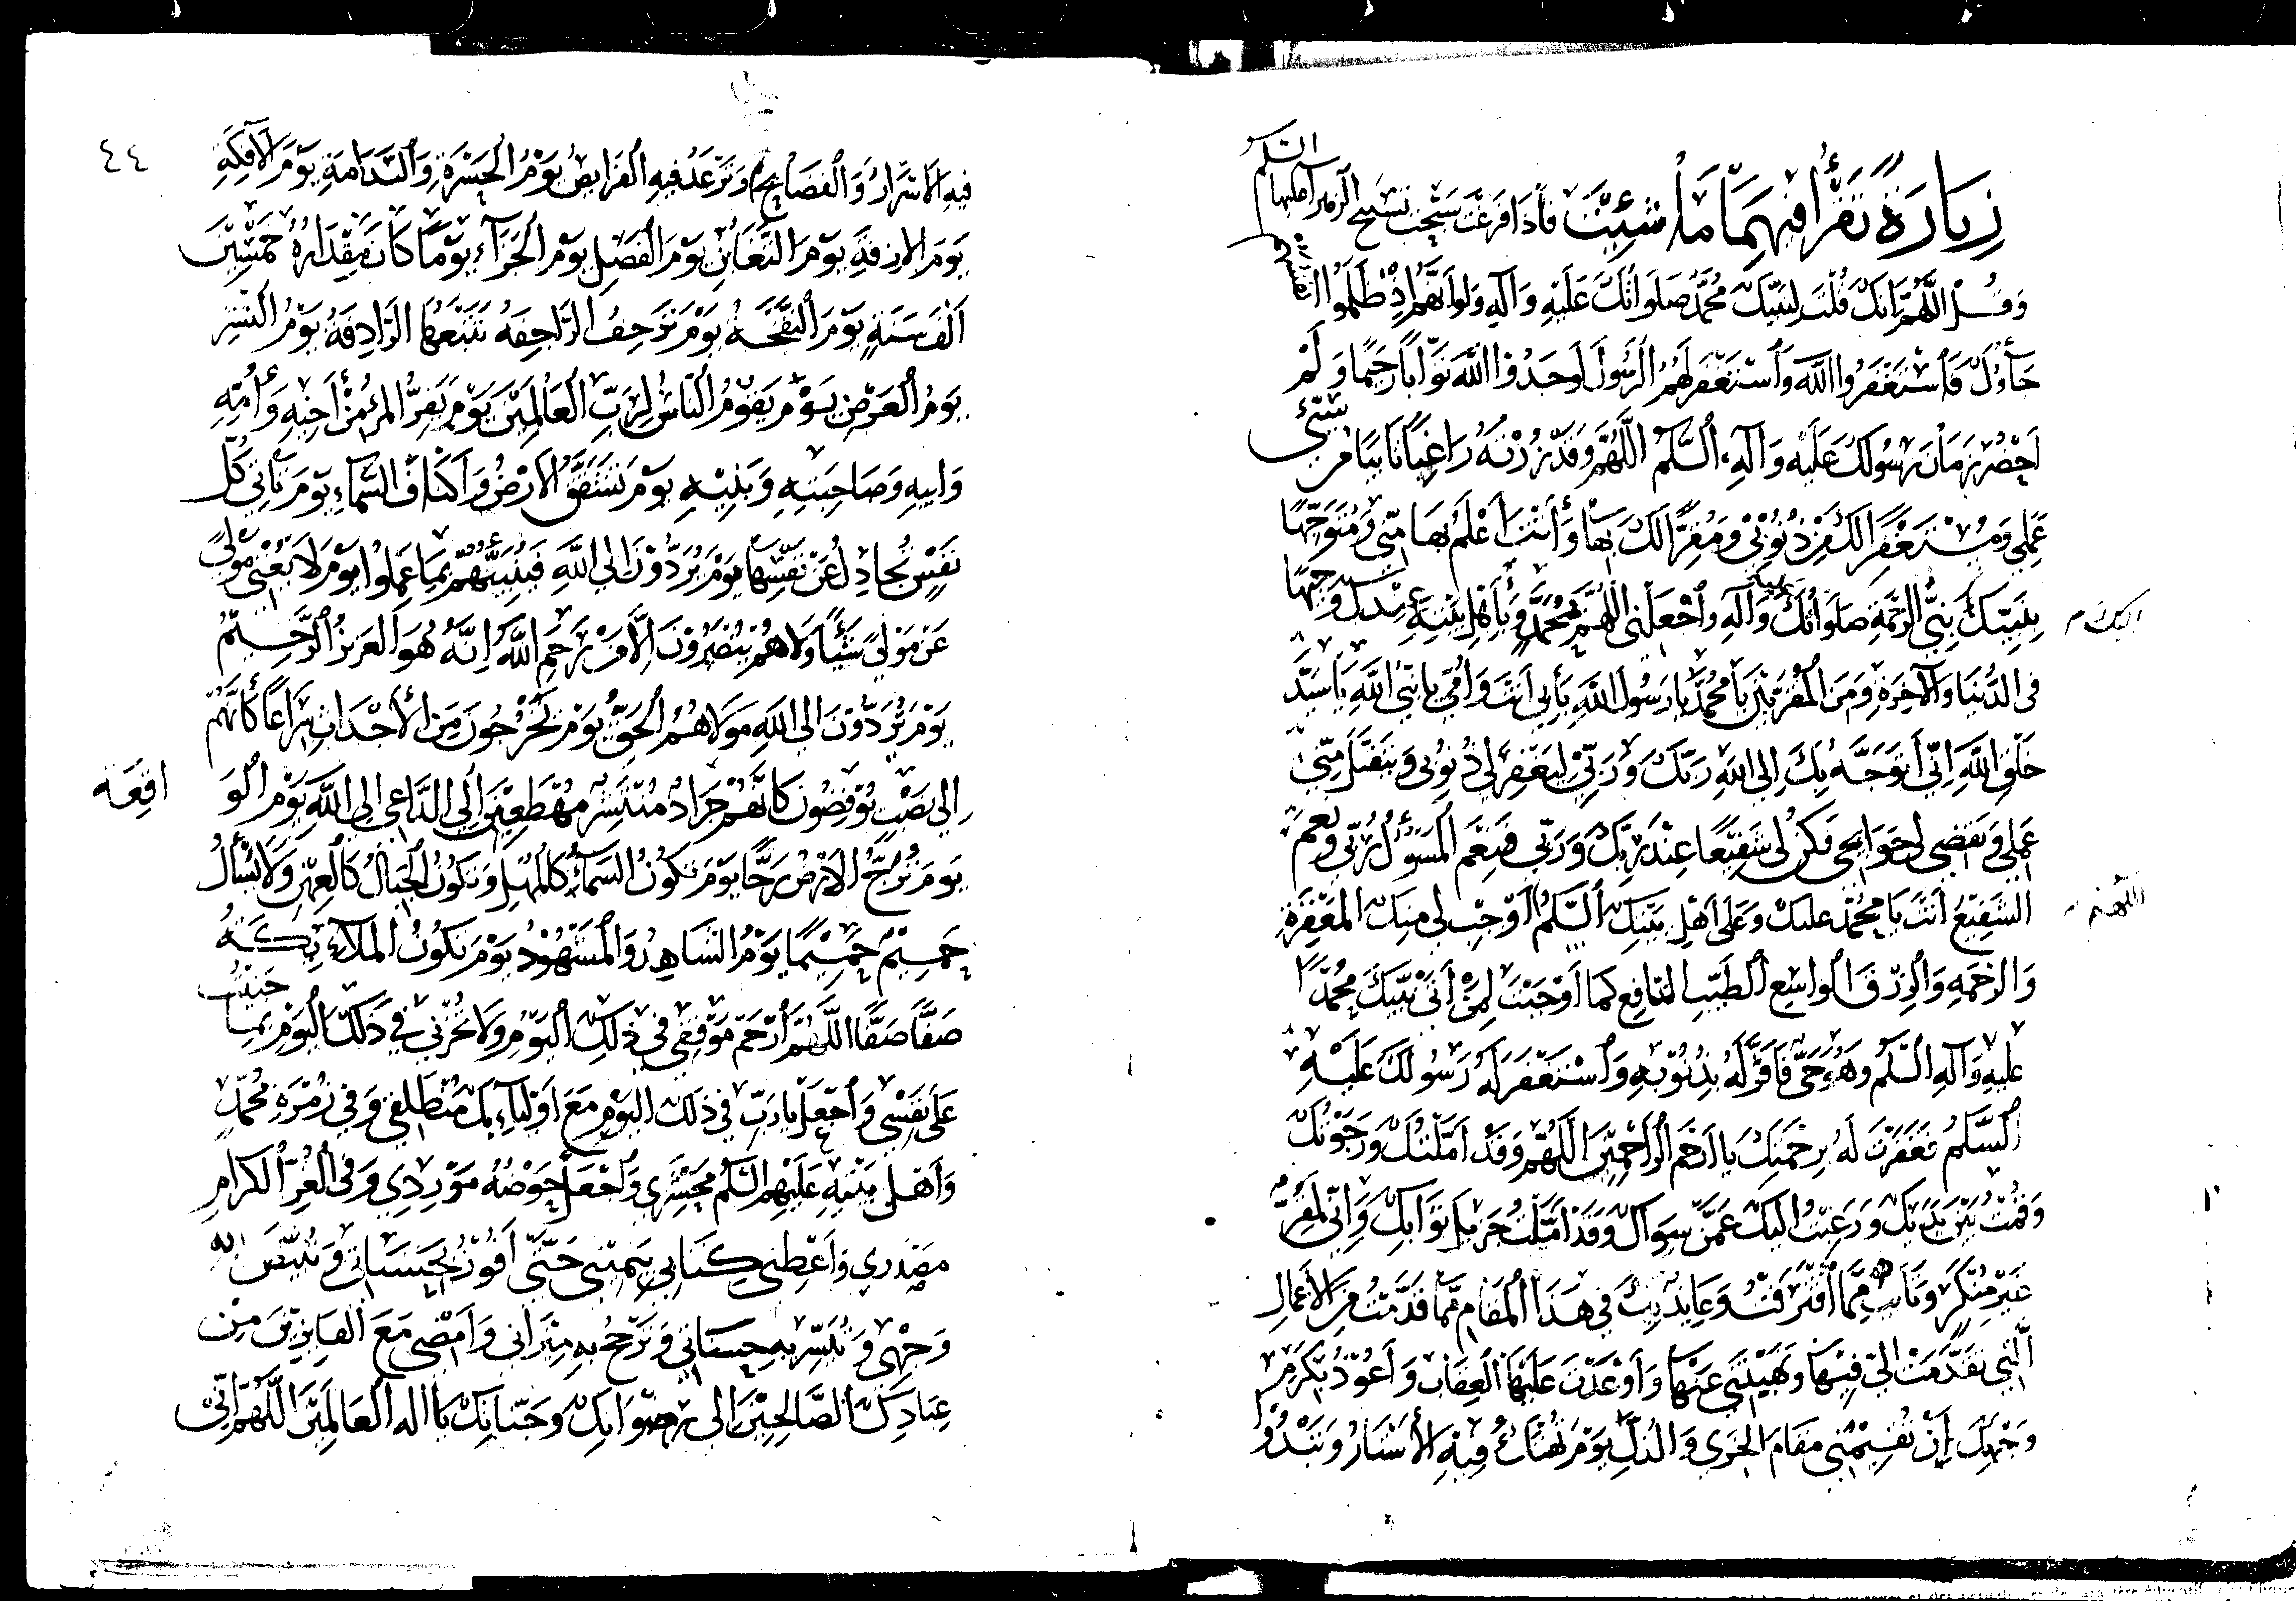 زيارة تقرأ فيهما ما شئت فاذا فرغت سبحت تسبيح الزهراء عليها السلم
وقل اللهم انك قلت لنبيك محمد صلواتك عليه وآله ولو انهم اذ ظلموا انفسهم
جاؤك فاستغفروا الله واستغفر لهم الرسول لوجدوا الله توابا رحيما ولم
احضر زمان رسولك عليه وآله السلم اللهم وقد زرته راغبا تائبا من سيئ
عملي ومستغفرا لك من ذنوبي ومقرا لك بها وأنت أعلم بها مني ومتوجها
اليك
بنبيك نبي الرحمة صلواتك عليه وآله واجعلني اللهم بمحمد وأهل بيته عندك وجيها
في الدنيا والآخرة ومن المقربين يا محمد يا رسول الله بأبي أنت وامي يا نبي الله يا سيد
خلق الله اني أتوجه بك الى الله ربك وربي ليغفر لي ذنوبي ويتقبل مني
عملي ويقضي لي حوائجي فكن لي شفيعا عند ربك وربي فنعم المسؤل ربي ونعم
الشفيع أنت يا محمد عليك وعلى اهل بيتك السلم اوجب لي منك المغفرة
اللهم
والرحمة والرزق الواسع الطيب النافع كما اوجبت لمن اتى نبيك محمدا
عليه وآله السلم وهو حي فأقر له بذنوبه واستغفر له رسولك عليه
السلم فغفرت له برحمتك يا ارحم الراحمين اللهم وقد املتك ورجوتك
وقمت بين يديك ورغبت اليك عمن سواك وقد املت جزيل ثوابك واني لمقر
غير منكر وتائب مما اقترفت وعائذ بك في هذا المقام مما قدمت من الاعمال
التي تقدمت الي فيها ونهيتني عنها واوعدت عليها العقاب واعوذ بكرم
وجهك ان تقيمني مقام الخزي والذل يوم تهتك فيه الأستار وتبدو
٤٤
فيه الاسرار والفضائح وترعد فيه الفرايص يوم الحسرة والندامة يوم الآفكة
يوم الازفة يوم التغابن يوم الفصل يوم الجزاء يوما كان مقداره خمسين
الف سنة يوم النفخة يوم ترجف الراجفة تتبعها الرادفة يوم النشر
يوم العرض يوم يقوم الناس لرب العالمين يوم يفر المرء من أخيه وأمه
وابيه وصاحبته وبنيه يوم تشقق الارض واكناف السماء يوم تأتي كل
نفس تجادل عن نفسها يوم يردون الى الله فينبئهم بما عملوا يوم لا يغني مولى
عن مولى شيئا ولا هم ينصرون الا من رحم الله انه هو العزيز الرحيم
يوم يردون الى الله مولاهم الحق يوم يخرجون من الأجداث سراعا كأنهم
الى نصب يوفضون كأنهم جراد منتشر مهطعين الى الداعي الى الله يوم الو اقعة
يوم ترج الارض رجا يوم تكون السماء كالمهل وتكون الجبال كالعهن ولا يسأل
حميم حميما يوم الشاهد والمشهود يوم تكون الملائكة
صفا صفا اللهم ارحم موقفي في ذلك اليوم ولا تخزني في ذلك اليوم بما جنيت
على نفسي واجعل يا رب في ذلك اليوم مع اوليائك منطلقي وفي زمرة محمد
واهل بيته عليهم السلم محشري واجعل حوضه موردي وفي الغر الكرام
مصدري واعطني كتابي بيميني حتى أفوز بحسناتي وتبيض به
وجهي وتيسر به حسابي وترجح به ميزاني وامضي مع الفايزين من
عبادك الصالحين الى رضوانك وجنانك يا اله العالمين اللهم اني